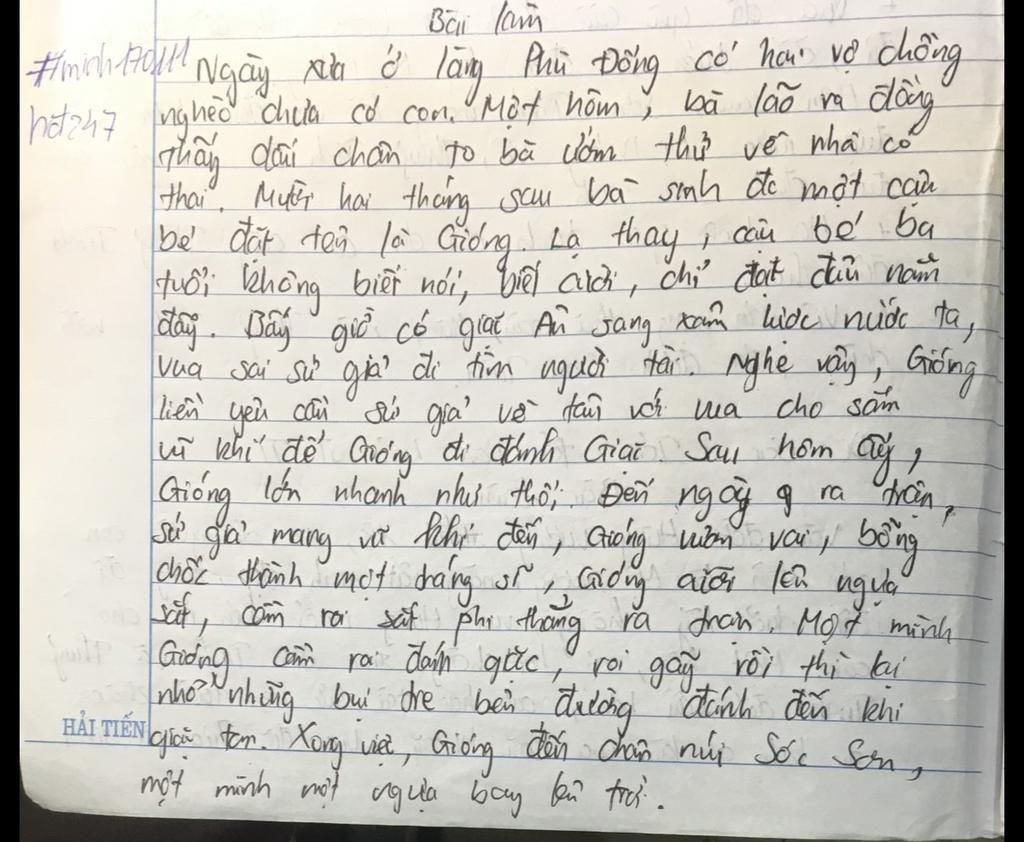 Bài làm
#minh170111 Ngày xưa ở làng Phù Đổng có hai vợ chồng
hot247 nghèo chưa có con. Một hôm, bà lão ra đồng
thấy dấu chân to bà ướm thử về nhà có
thai. Mười hai tháng sau bà sinh đc một cậu
bé đặt tên là Gióng. Lạ thay, cậu bé ba
tuổi không biết nói, biết cười, chỉ đặt đâu nằm
đấy. Bấy giờ có giặc Ân sang xâm lược nước ta,
vua sai sứ giả đi tìm người tài. Nghe vậy, Gióng
liền yêu cầu sứ giả về tâu với vua cho sắm
vũ khí để Gióng đi đánh Giặc. Sau hôm ấy,
Gióng lớn nhanh như thổi. Đến ngày ra trận,
sứ giả mang vũ khí đến, Gióng vươn vai, bỗng
chốc thành một tráng sĩ, Gióng cưỡi lên ngựa
sắt, cầm roi sắt phi thẳng ra trận. Một mình
Gióng cầm roi đánh giặc, roi gãy rồi thì lại
nhổ những bụi tre bên đường đánh đến khi
HẢI TIẾN giặc tan. Xong việc, Gióng đến chân núi Sóc Sơn,
một mình một ngựa bay lên trời.